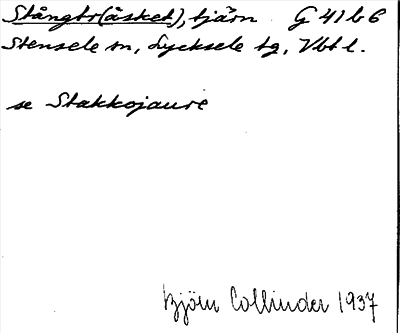 Stångtr(äsket), tjärn G 41 b 6
Stensele sn, Lycksele tg, Vbtl.
se Stakkojaure
Björn Collinder 1937